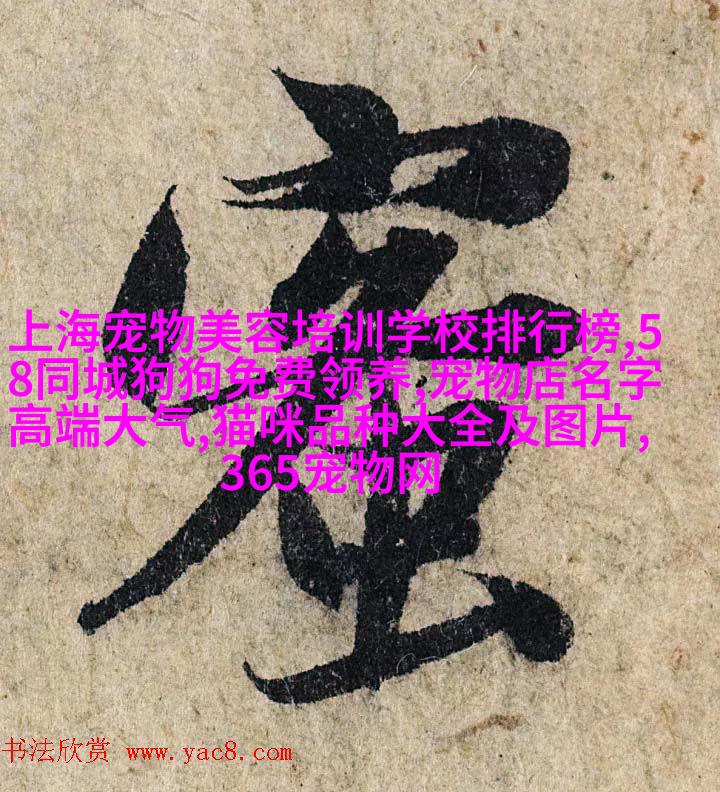 蜜
上海宠物美容培训学校排行榜,5
8同城狗狗免费领养,宠物店名字
高端大气,猫咪品种大全及图片,
365宠物网
书法欣赏 www.yac8.com